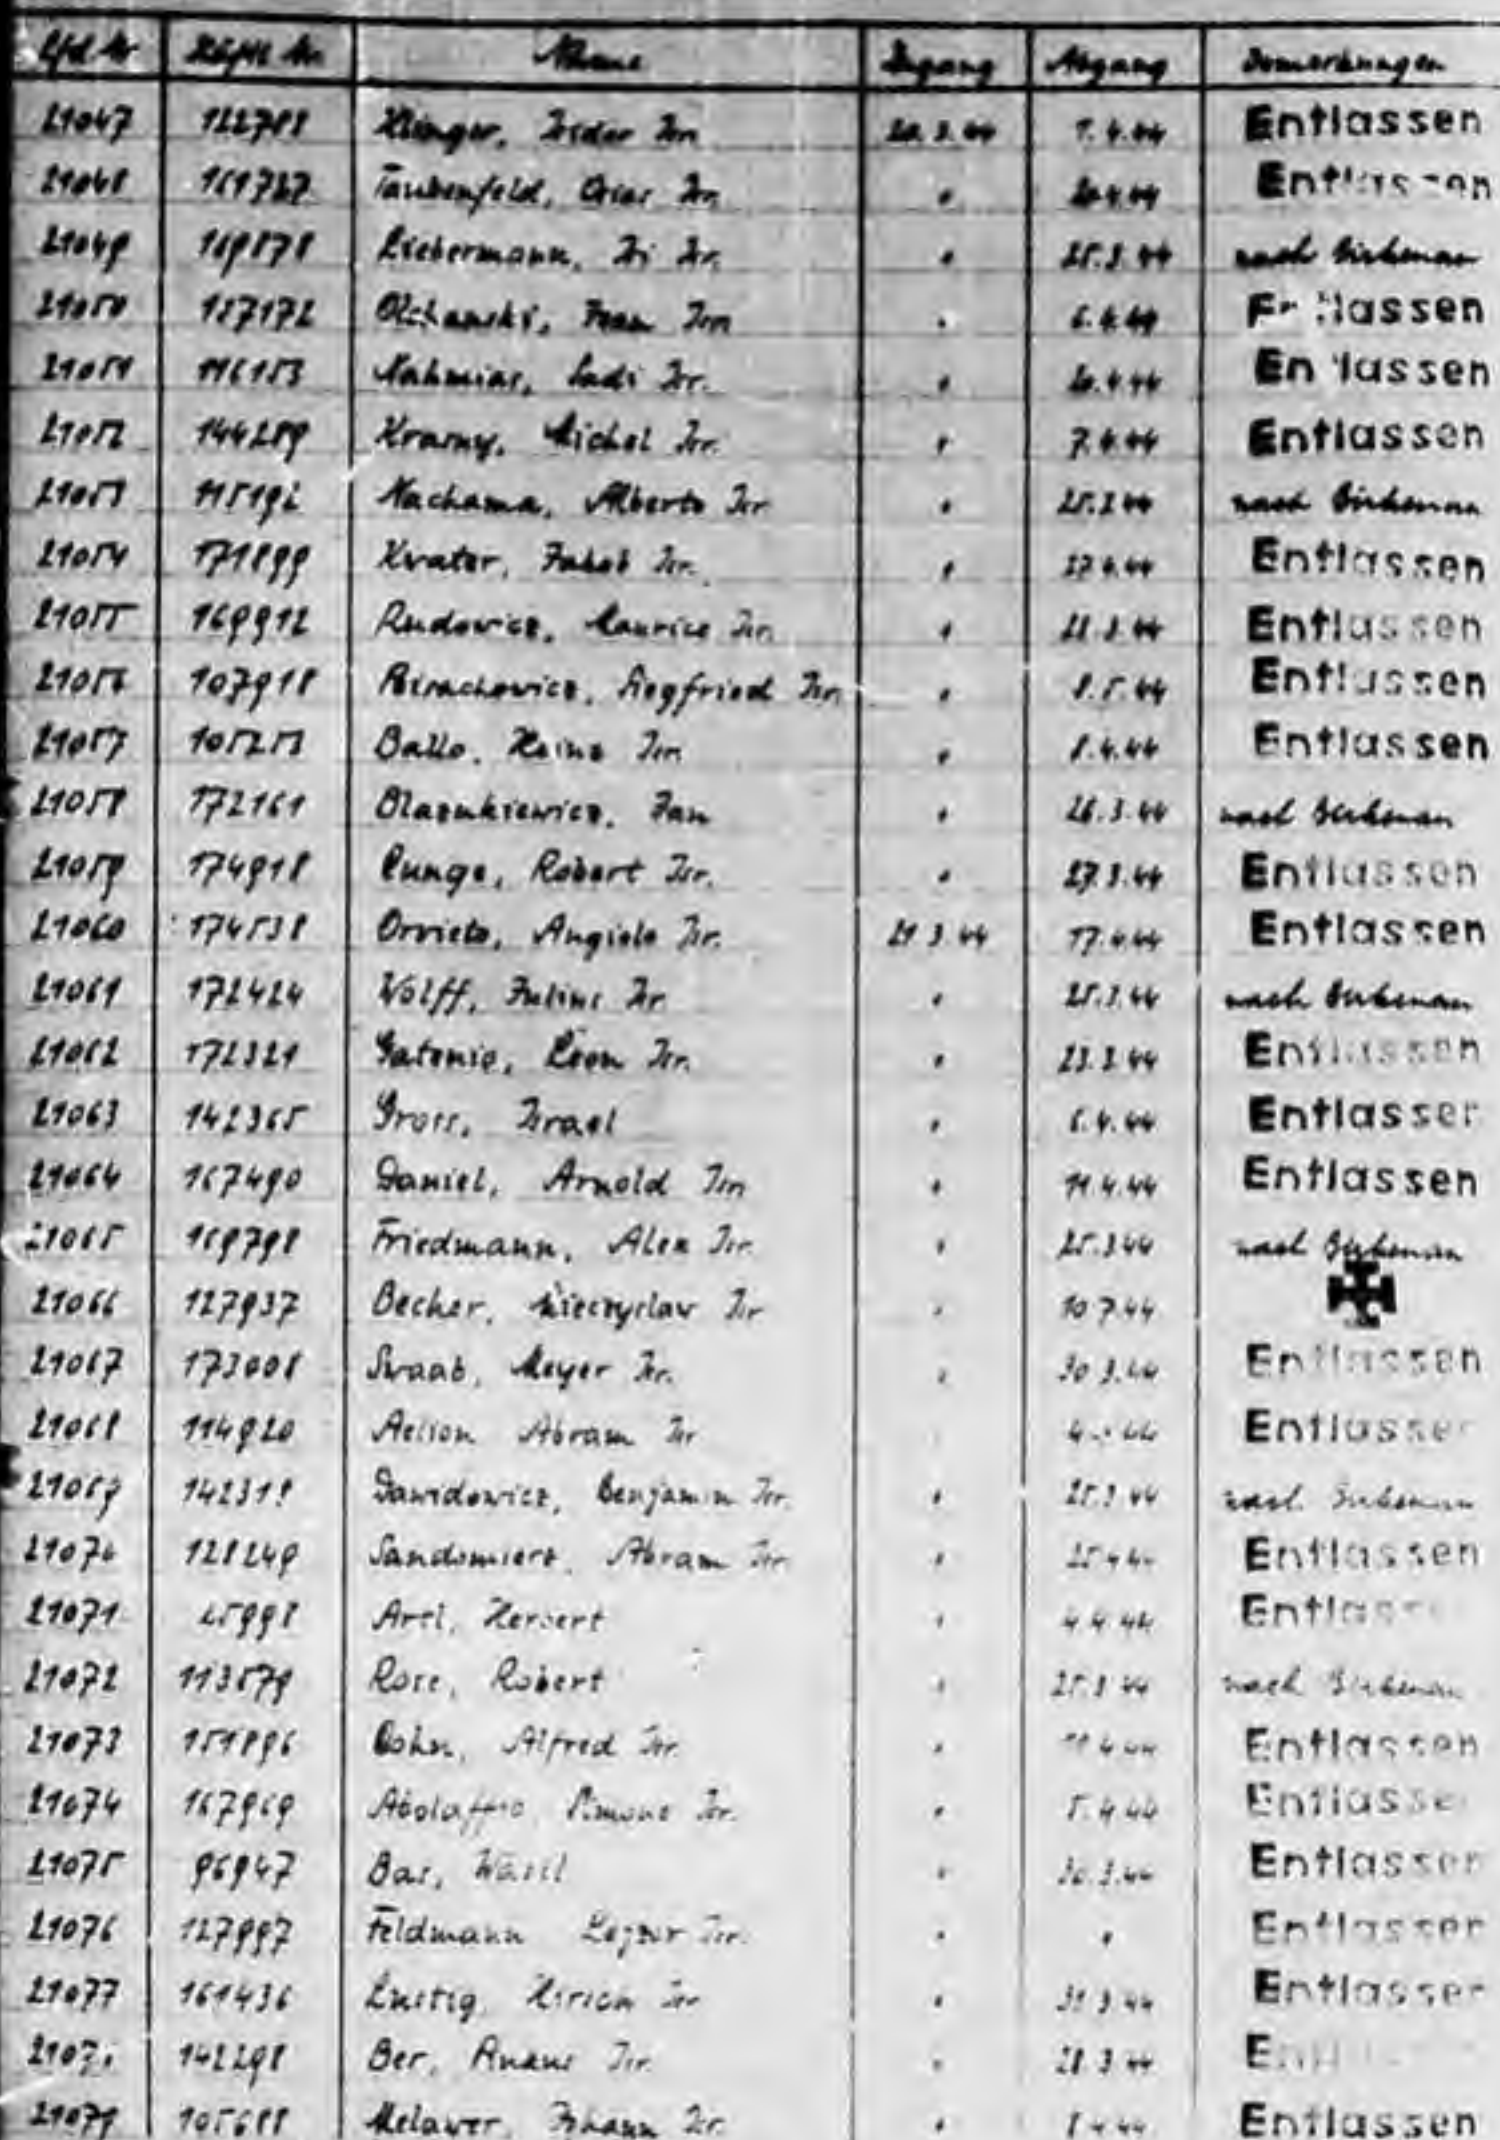 Lfd Nr Häftl. Nr. Name Zugang Abgang Bemerkungen
21047 122788 Klinger, Isidor Isr. 20.3.44 1.4.44 Entlassen
21048 161727 Taubenfeld, Isr. " 20.4.44 Entlassen
21049 169878 Liebermann, Isr. " 25.3.44 nach Birkenau
21050 157172 Isr. " 6.4.44 Entlassen
21051 116153 Nahmias, Sadi Isr. " 20.4.44 Entlassen
21052 144259 Krasny, Michel Isr. " 7.4.44 Entlassen
21053 115192 Nachama, Alberto Isr. " 25.3.44 nach Birkenau
21054 171899 Kvater, Jakob Isr. " 27.4.44 Entlassen
21055 169912 Rudowicz, Maurice Isr. " 28.3.44 Entlassen
21056 107918 Siegfried Isr. " 8.5.44 Entlassen
21057 105253 Ballo, Heinz Isr. " 8.4.44 Entlassen
21058 172161 Jan " 26.3.44 nach Birkenau
21059 174918 Runge, Robert Isr. " 27.3.44 Entlassen
21060 174538 Orvieto, Angielo Isr. 21.3.44 17.4.44 Entlassen
21061 172424 Wolff, Julius Isr. " 25.3.44 nach Birkenau
21062 172321 Gatenio, Leon Isr. " 23.3.44 Entlassen
21063 142365 Gross, Israel " 6.4.44 Entlassen
21064 167490 Daniel, Arnold Isr. " 11.4.44 Entlassen
21065 169798 Friedmann, Alex Isr. " 25.3.44 nach Birkenau
21066 127937 Becher, Mieczyslaw Isr. " 10.7.44
21067 173008 Swaab, Meyer Isr. " 30.3.44 Entlassen
21068 114920 Aelion Abram Isr. Entlassen
21069 Dawidowicz, Benjamin Isr. " 25.3.44 nach Birkenau
21070 128249 Sandomierz, Abram Isr. " 25.4.44 Entlassen
21071 Artl, Herbert " 4.4.44 Entlassen
21072 113579 Rose, Robert " 25.3.44 nach Birkenau
21073 151896 Cohn, Alfred Isr. " 11.4.44 Entlassen
21074 167969 Abolaffio, Simone Isr. " 5.4.44 Entlassen
21075 96947 Bas, Wasil " 30.3.44 Entlassen
21076 127997 Feldmann Lejzor Isr. " " Entlassen
21077 161436 Lustig, Hirsch Isr. " 31.3.44 Entlassen
21078 142298 Ber, Isr. " 28.3.44
21079 105688 Melawer, Johann Isr. " 8.4.44 Entlassen